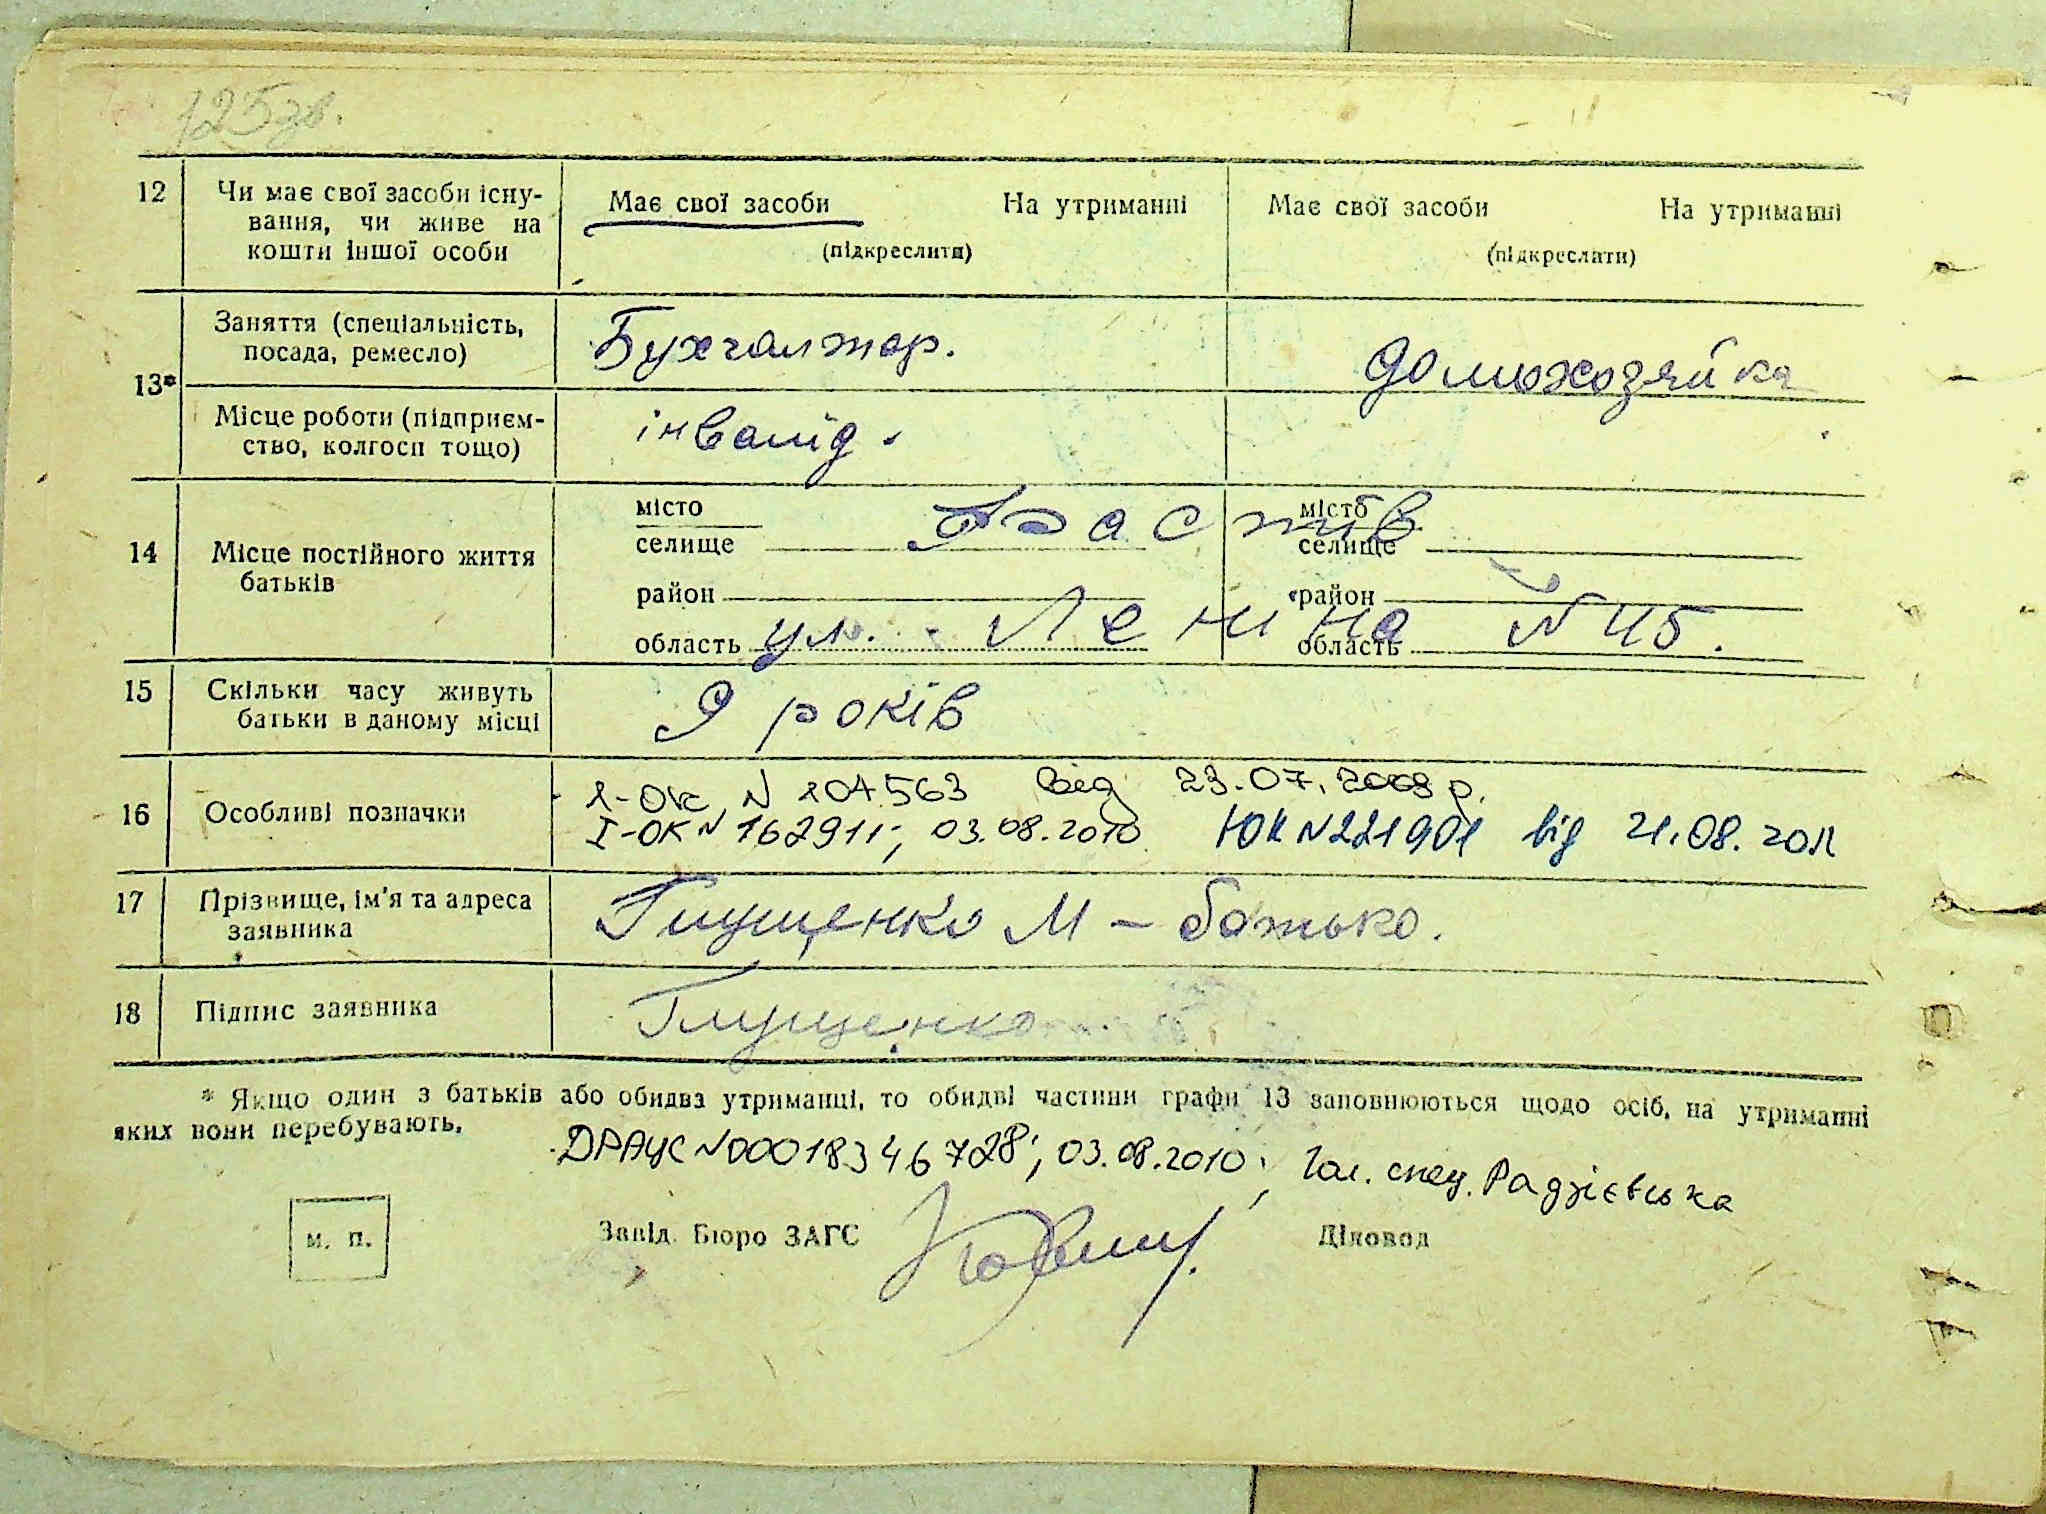 125зв.
12 Чи має свої засоби існу- Має свої засоби На утриманні Має свої засоби На утриманні
вання, чи живе на
кошти іншої особи (підкреслити) (підкреслати)
Заняття (спеціальність, Бухгалтер. домохозяйка
посада, ремесло)
13*
Місце роботи (підприєм- інвалід.
ство, колгосп тощо)
місто Фастів місто
селище селище
14 Місце постійного життя
батьків
район район
область ул. Ленина область № 45.
15 Скільки часу живуть 9 років
батьки в даному місці
16 Особливі позначки 1-ОК N 104563 від 23.07.2008 р.
І-ОК N 162911; 03.08.2010 ІОК N 221901 від 21.08.2012
17 Прізвище, ім'я та адреса Глущенко М - батько.
заявника
18 Підпис заявника Глущенко
* Якщо один з батьків або обидва утриманці, то обидві частини графи 13 заповнюються щодо осіб, на утриманні
яких вони перебувають.
ДРАЦС N00018346728; 03.08.2010; Гол. спец. Радзієвська
м. п. Завід. Бюро ЗАГС Діловод